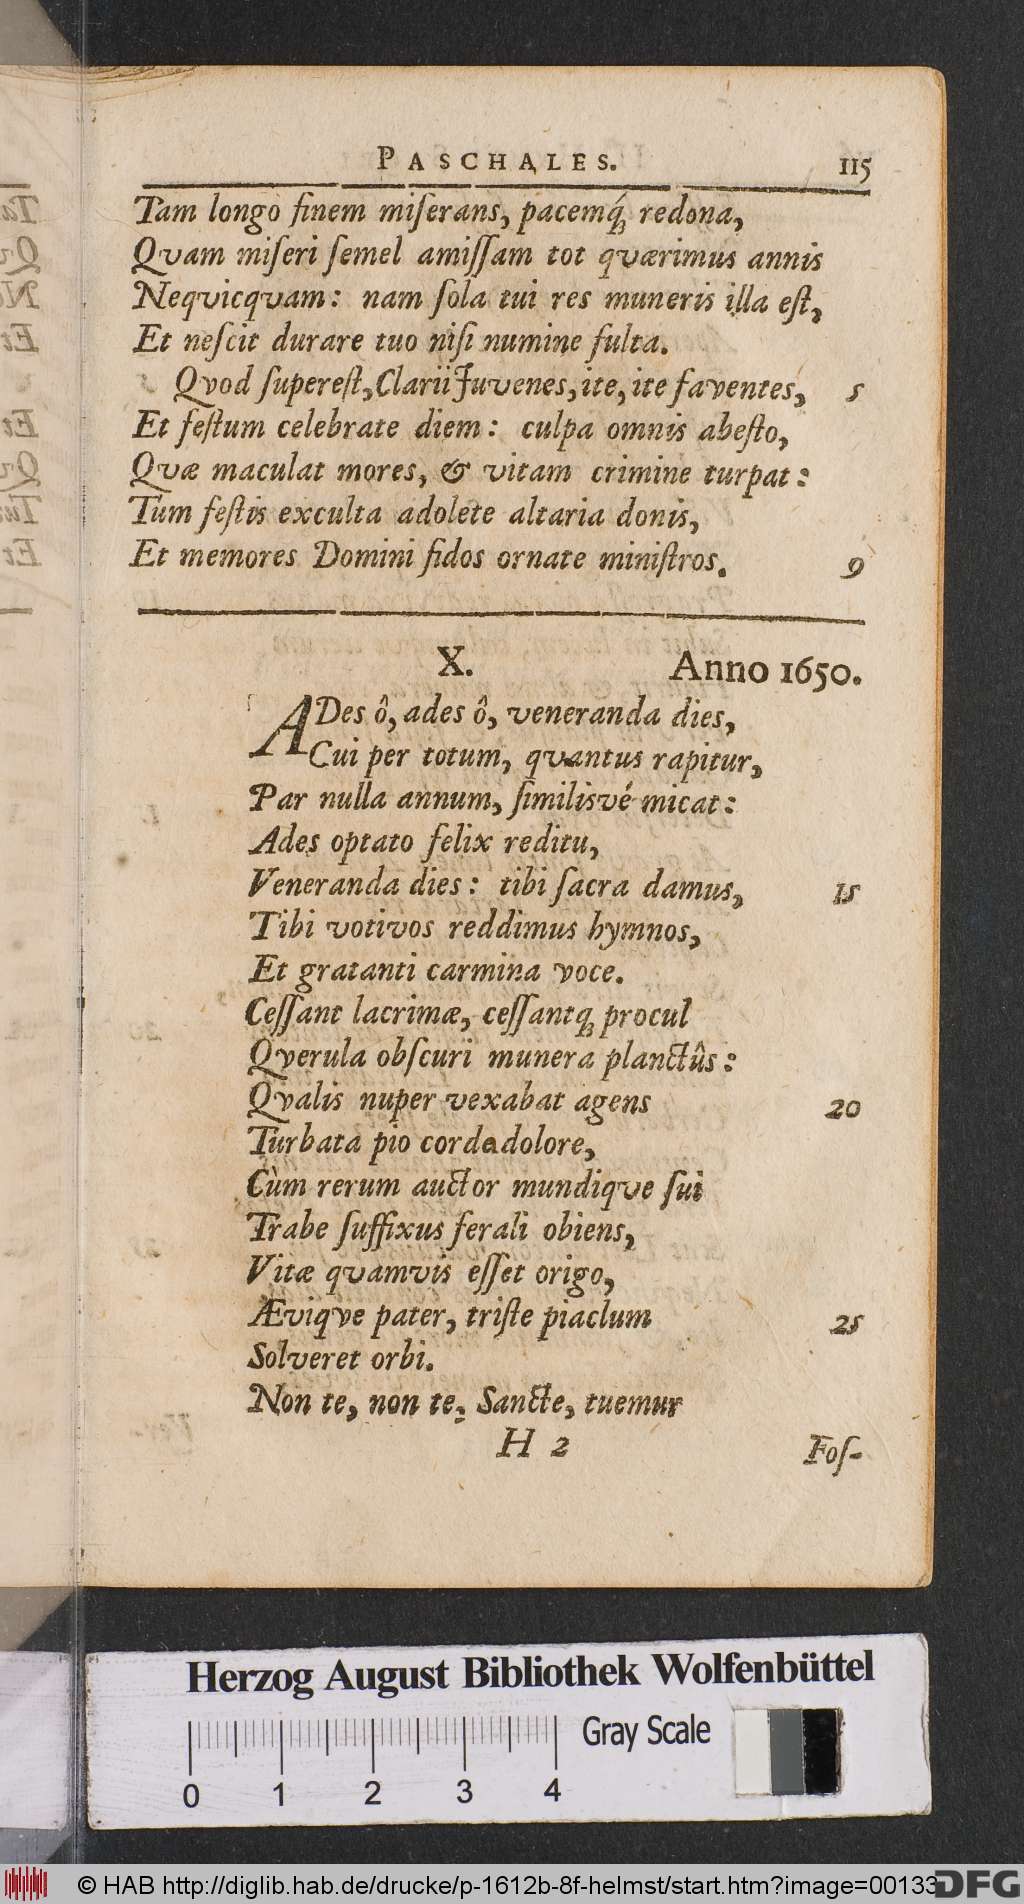 PASCHALES. 115
Tam longo finem miſerans, pacemq́ꝫ redona,
Qvam miſeri ſemel amiſſam tot qværimus annis
Neqvicqvam: nam ſola tui res muneris illa eſt,
Et neſcit durare tuo niſi numine fulta.
Qvod ſupereſt, Clarii Juvenes, ite, ite faventes, 5
Et feſtum celebrate diem: culpa omnis abeſto,
Qvæ maculat mores, & vitam crimine turpat:
Tum feſtis exculta adolete altaria donis,
Et memores Domini fidos ornate miniſtros. 9
X. Anno 1650.
ADes ô, ades ô, veneranda dies,
Cui per totum, qvantus rapitur,
Par nulla annum, ſimilisvé micat:
Ades optato felix reditu,
Veneranda dies: tibi ſacra damus, 15
Tibi votivos reddimus hymnos,
Et gratanti carmina voce.
Ceſſant lacrimæ, ceſſantqꝫ procul
Qverula obſcuri munera planctûs:
Qvalis nuper vexabat agens 20
Turbata pio corda dolore,
Cùm rerum auctor mundiqve ſui
Trabe ſuffixus ferali obiens,
Vitæ qvamvis eſſet origo,
Æviqve pater, triſte piaclum 25
Solveret orbi.
Non te, non te, Sancte, tuemur
H 2 Foſ-
Herzog August Bibliothek Wolfenbüttel
Gray Scale
0 1 2 3 4
© HAB http://diglib.hab.de/drucke/p-1612b-8f-helmst/start.htm?image=00133
DFG